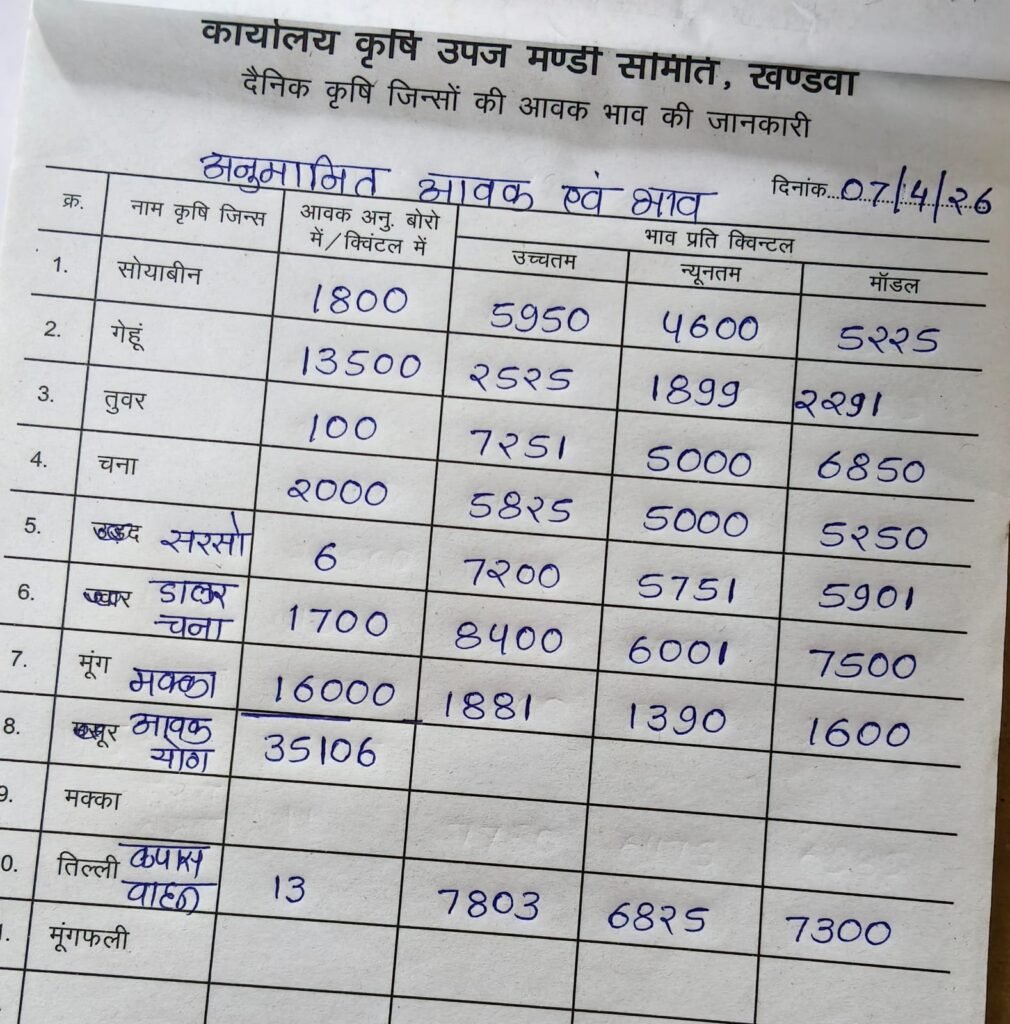 कार्यालय कृषि उपज मण्डी समिति, खण्डवा
दैनिक कृषि जिन्सों की आवक भाव की जानकारी
अनुमानित आवक एवं भाव दिनांक...07/4/26
क्र. नाम कृषि जिन्स आवक अनु. बोरो में/क्विंटल में भाव प्रति क्विन्टल
उच्चतम न्यूनतम मॉडल
1. सोयाबीन 1800 5950 4600 5२२5
2. गेहूं 13500 २5२5 1899 २२91
3. तुवर 100 7२51 5000 6850
4. चना २000 58२5 5000 5२50
5. उड़द सरसो 6 7२00 5751 5901
6. ज्वार डालर चना 1700 8400 6001 7500
7. मूंग मक्का 16000 1881 1390 1600
8. मसूर आवक योग 35106
9. मक्का
0. तिल्ली कपास वाहन 13 7803 68२5 7300
. मूंगफली